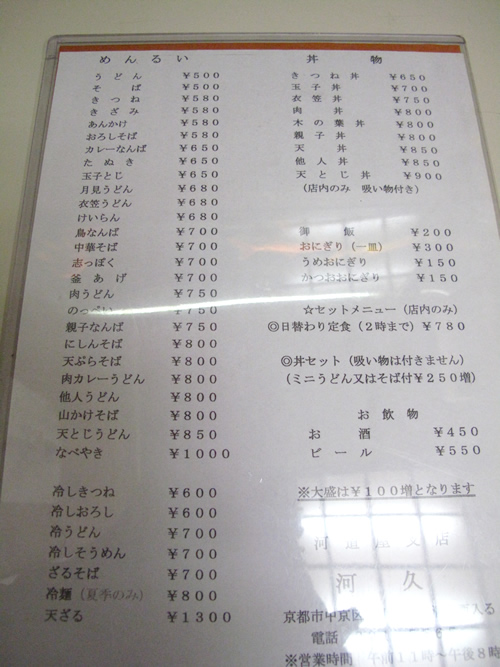 めんるい
うどん ￥500
そば ￥500
きつね ￥580
きざみ ￥580
あんかけ ￥580
おろしそば ￥580
カレーなんば ￥650
たぬき ￥650
玉子とじ ￥650
月見うどん ￥680
衣笠うどん ￥680
けいらん ￥680
鳥なんば ￥700
中華そば ￥700
志っぽく ￥700
釜あげ ￥700
肉うどん ￥750
のっぺい ￥750
親子なんば ￥750
にしんそば ￥800
天ぷらそば ￥800
肉カレーうどん ￥800
他人うどん ￥800
山かけそば ￥800
天とじうどん ￥850
なべやき ￥1000
冷しきつね ￥600
冷しおろし ￥600
冷うどん ￥700
冷しそうめん ￥700
ざるそば ￥700
冷麺（夏季のみ） ￥800
天ざる ￥1300
丼物
きつね丼 ￥650
玉子丼 ￥700
衣笠丼 ￥750
肉丼 ￥800
木の葉丼 ￥800
親子丼 ￥800
天丼 ￥850
他人丼 ￥850
天とじ丼 ￥900
（店内のみ 吸い物付き）
御飯 ￥200
おにぎり（一皿） ￥300
うめおにぎり ￥150
かつおおにぎり ￥150
☆セットメニュー（店内のみ）
◎日替わり定食（2時まで）￥780
◎丼セット（吸い物は付きません）
（ミニうどん又はそば付￥250増）
お飲物
お酒 ￥450
ビール ￥550
※大盛は￥100増となります
河道屋支店
河久
京都市中京区 入る
電話
※営業時間 午前11時～午後8時